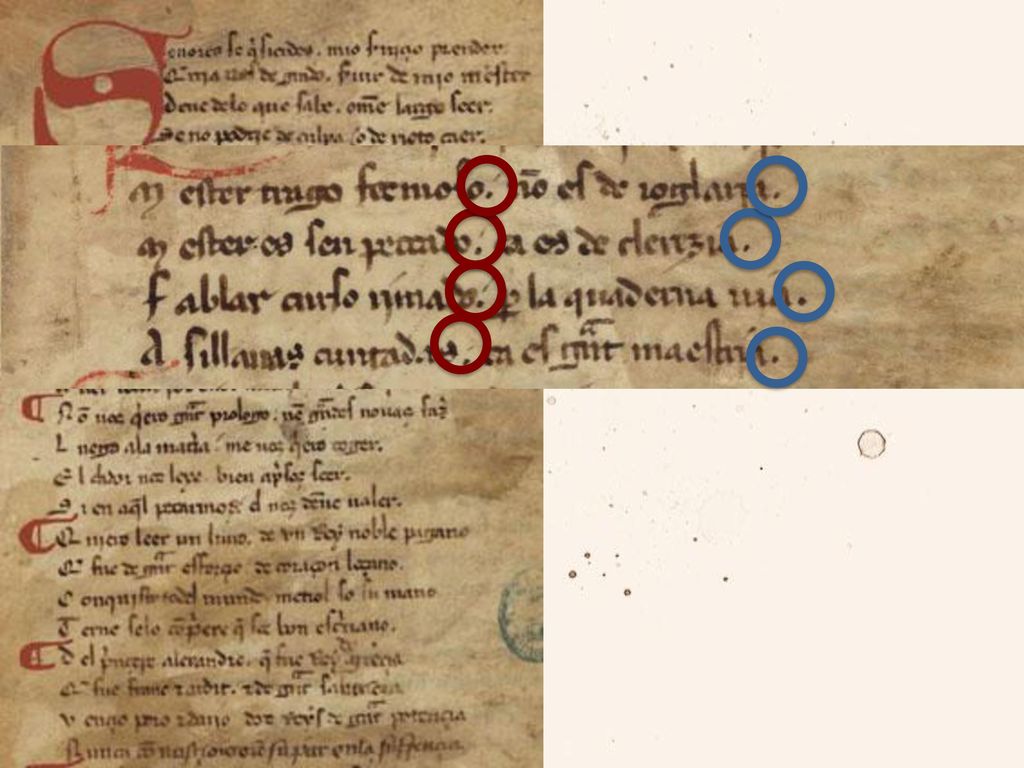 Senores se q̃sieredes. mio seruiço prender
Q̃rria uos de grado. seruir de mio mester
Deue delo que sabe. ome largo seer.
Se no podrie de culpa / o de rieto caer.
M ester trago fermoso. nõ es de ioglaria.
M ester es sen peccado. ca es de clerezia.
F ablar curso rimado. p̱ la quaderna uia.
A sillauas cuntadas. ca es grãt maestria.
Nõ uos q̃ero grãt prologo. nẽ grãdes nouas faz̃
L uego ala matia me uos q̃ero coger.
E l bien apˢos seer.
S i en aq̃l d nos ualer.
Q uiero leer un liuro. de vn Rey noble pagano
Q̃ fue de grãt esforço de coraçon loçano.
C onquisto todel mundo metiol so su mano
T erne selo cõpˢere q̃ soe bon escˢiuano.
D el pˢncepe alexandre. q̃ fue Rey de grecia
Q̃ fue franc ⁊ ardit. ⁊ de grãt sabiencia
V encio poro ⁊ dario dos Reys de grãt potencia